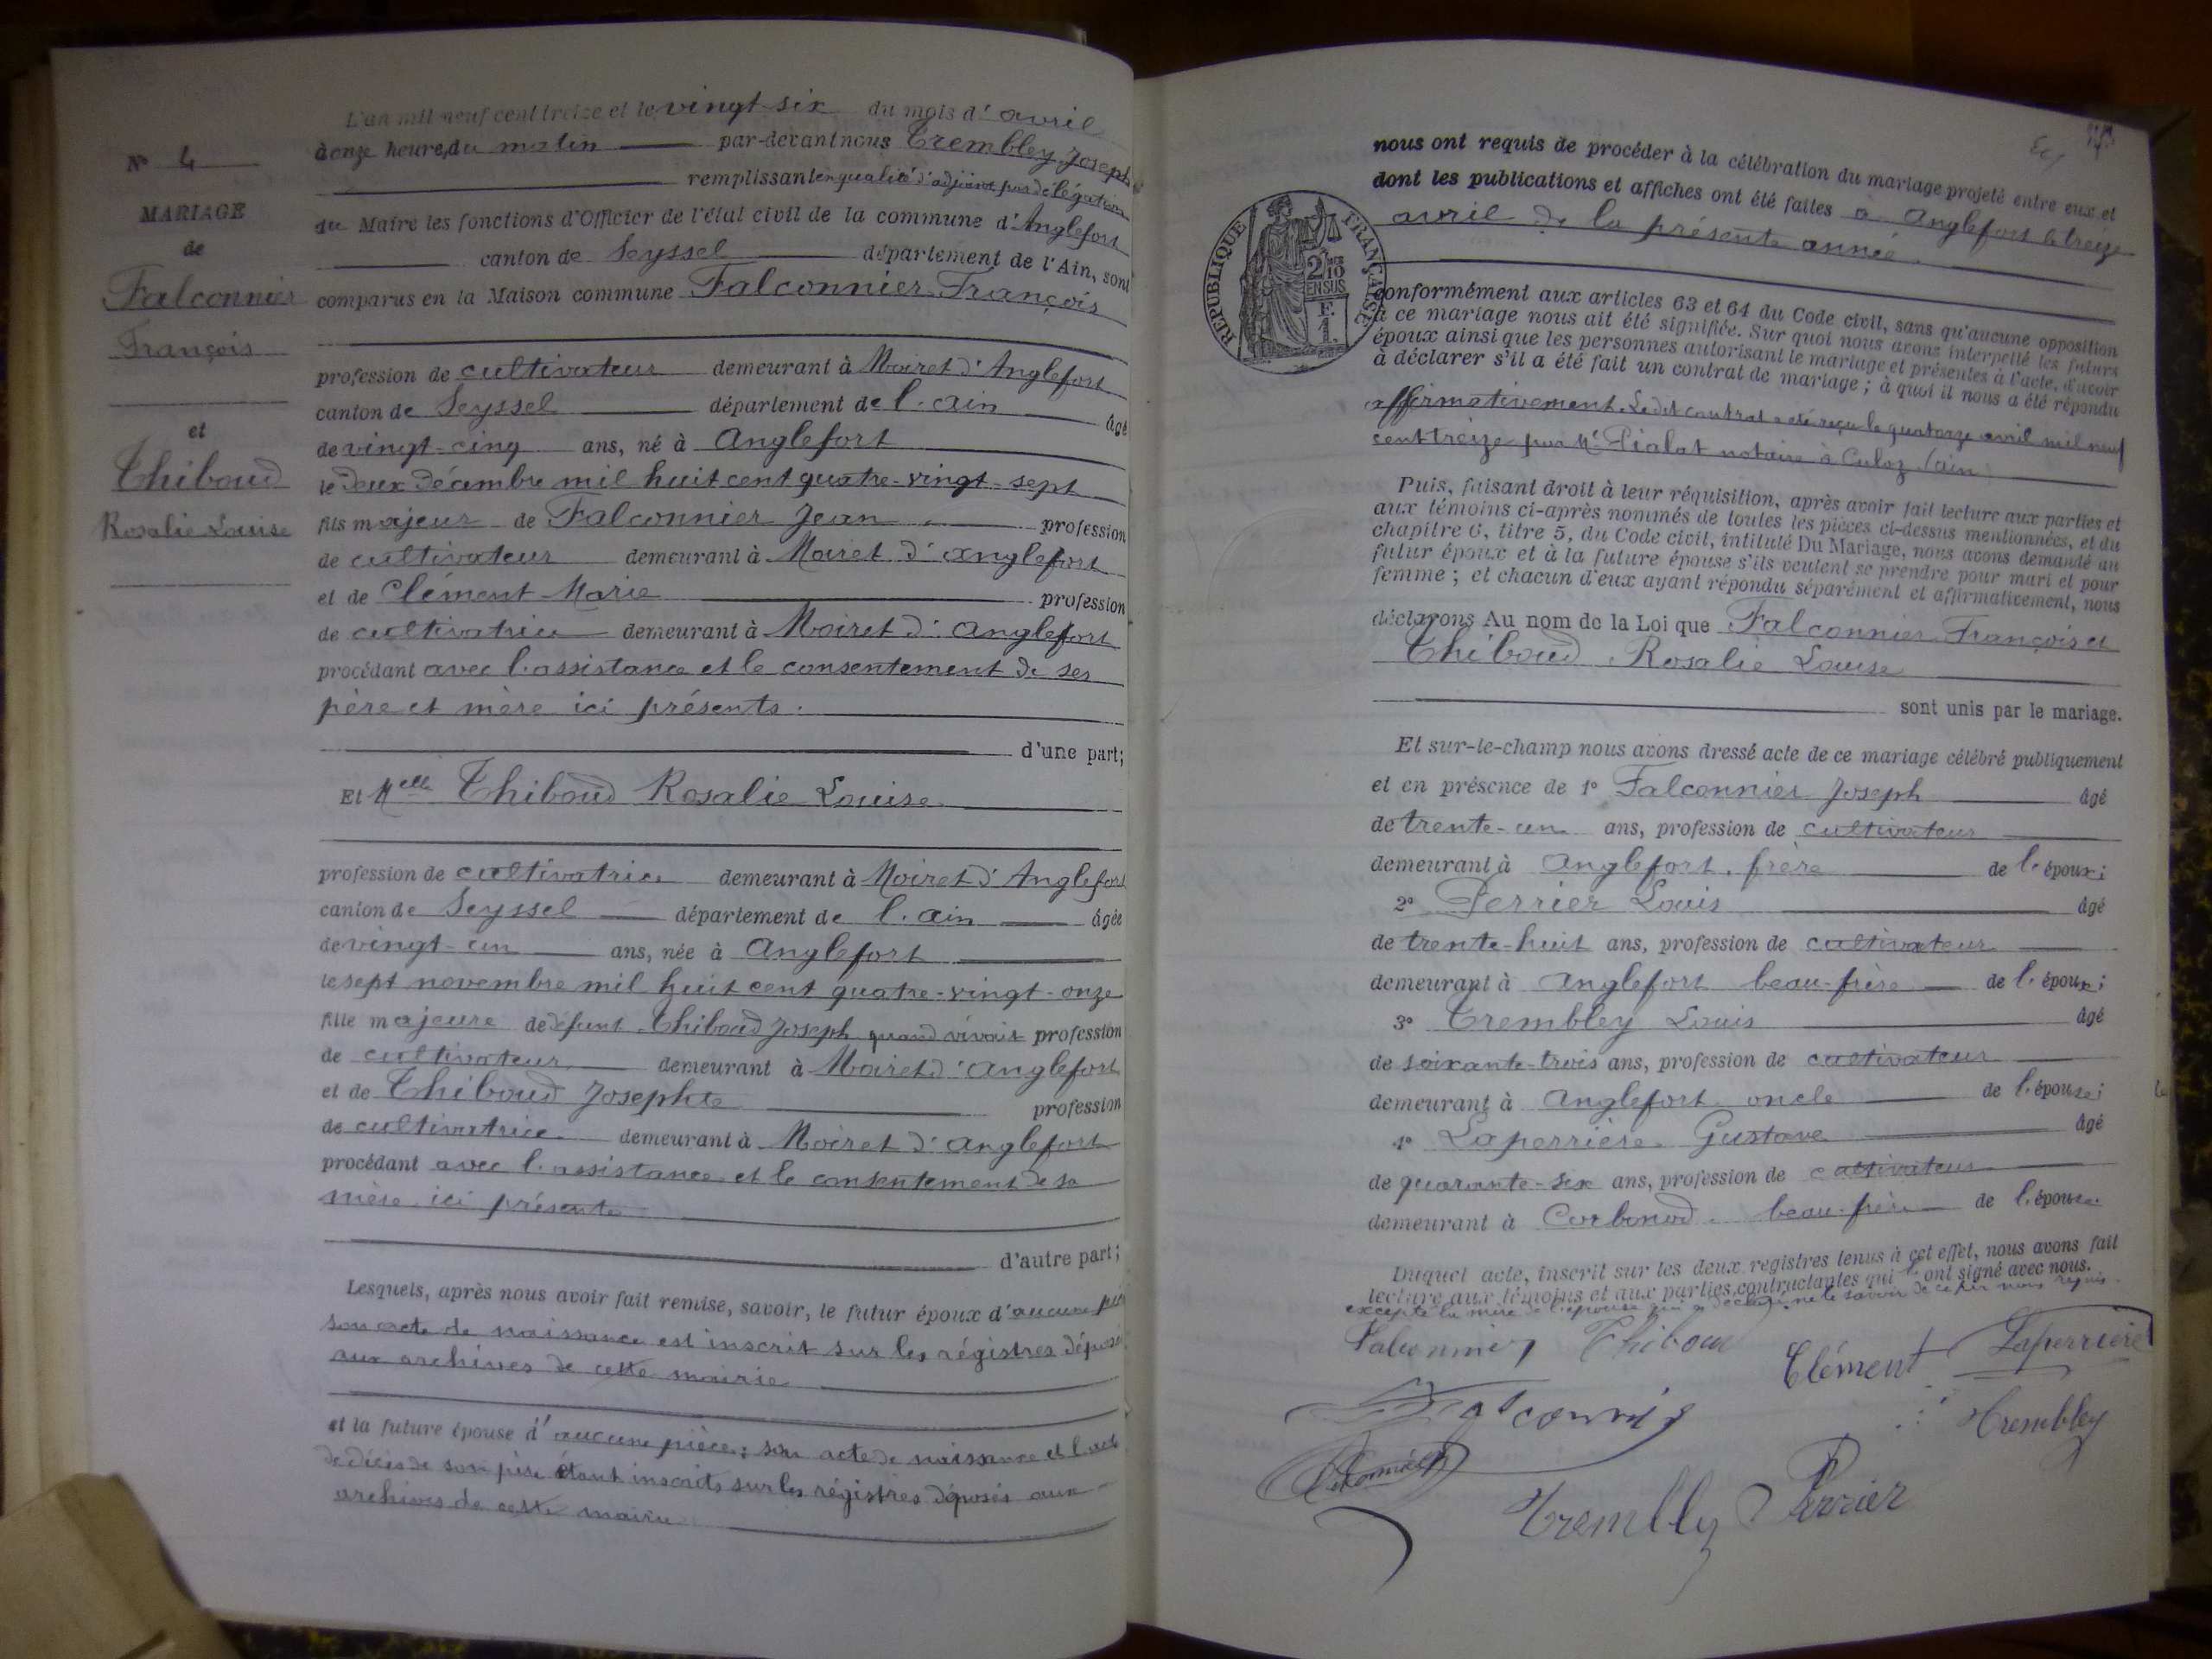 L'an mil neuf cent treize et le vingt-six du mois d'avril
à onze heures du matin par-devant nous Trembley Joseph
remplissant en qualité d'adjoint par délégation
du Maire les fonctions d'Officier de l'état civil de la commune d'Anglefort
canton de Seyssel département de l'Ain, sont
comparus en la Maison commune Falconnier François
N° 4
MARIAGE
de
Falconnier
François
et
Thiboud
Rosalie Louise
profession de cultivateur demeurant à Moiret d'Anglefort
canton de Seyssel département de l'ain âgé
de vingt-cinq ans, né à Anglefort
le deux décembre mil huit cent quatre-vingt-sept
fils majeur de Falconnier Jean profession
de cultivateur demeurant à Moiret d'anglefort
et de Clément Marie profession
de cultivatrice demeurant à Moiret d'anglefort
procédant avec l'assistance et le consentement de ses
père et mère ici présents.
d'une part;
Et Melle Thiboud Rosalie Louise
profession de cultivatrice demeurant à Moiret d'Anglefort
canton de Seyssel département de l'ain âgée
de vingt-un ans, née à Anglefort
le sept novembre mil huit cent quatre-vingt-onze
fille majeure de défunt Thiboud Joseph quand vivait profession
de cultivateur demeurant à Moiret d'anglefort
et de Thiboud Josephte profession
de cultivatrice demeurant à Moiret d'anglefort
procédant avec l'assistance et le consentement de sa
mère ici présente
d'autre part;
Lesquels, après nous avoir fait remise, savoir, le futur époux d'aucune
son acte de naissance est inscrit sur les régistres déposé
aux archives de cette mairie
et la future épouse d'aucune pièce; son acte de naissance et l'acte
de décès de son père étant inscrits sur les régistres déposés aux
archives de cette mairie
nous ont requis de procéder à la célébration du mariage projeté entre eux et
dont les publications et affiches ont été faites à Anglefort le treize
avril de la présente année
REPUBLIQUE FRANÇAISE
2/10
EN SUS
F.
1.
conformément aux articles 63 et 64 du Code civil, sans qu'aucune opposition
à ce mariage nous ait été signifiée. Sur quoi nous avons interpellé les futurs
époux ainsi que les personnes autorisant le mariage et présentes à l'acte, d'avoir
à déclarer s'il a été fait un contrat de mariage; à quoi il nous a été répondu
affirmativement. Ledit contrat a été reçu le quatorze avril mil neuf
cent treize par Me Pialat notaire à Culoz (ain)
Puis, faisant droit à leur réquisition, après avoir fait lecture aux parties et
aux témoins ci-après nommés de toutes les pièces ci-dessus mentionnées, et du
chapitre 6, titre 5, du Code civil, intitulé Du Mariage, nous avons demandé au
futur époux et à la future épouse s'ils veulent se prendre pour mari et pour
femme; et chacun d'eux ayant répondu séparément et affirmativement, nous
déclarons Au nom de la Loi que Falconnier François et
Thiboud Rosalie Louise
sont unis par le mariage.
Et sur-le-champ nous avons dressé acte de ce mariage célébré publiquement
et en présence de 1° Falconnier Joseph âgé
de trente-un ans, profession de cultivateur
demeurant à Anglefort, frère de l'époux;
2° Perrier Louis âgé
de trente-huit ans, profession de cultivateur
demeurant à Anglefort beau-frère de l'époux;
3° Trembley Louis âgé
de soixante-trois ans, profession de cultivateur
demeurant à Anglefort oncle de l'épouse;
4° Laperrière Gustave âgé
de quarante-six ans, profession de cultivateur
demeurant à Corbonod, beau-frère de l'épouse
Duquel acte, inscrit sur les deux registres tenus à cet effet, nous avons fait
lecture aux témoins et aux parties contractantes qui ont signé avec nous.
excepté la mère de l'épouse qui a déclaré ne le savoir de ce par nous requis.
Falconnier Thiboud Clément Laperrière
Trembley
Trembley Perrier